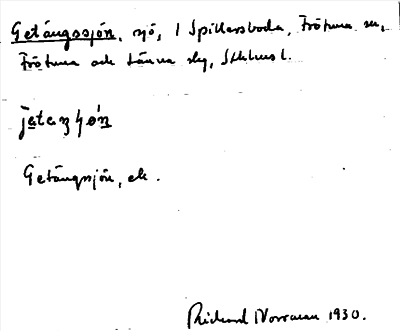 Getängssjön, sjö, i Spillersboda, Frötuna sn,
Frötuna och Länna skg, Sthlms l.
Getängsjön, ek.
Richard Norrman 1930.